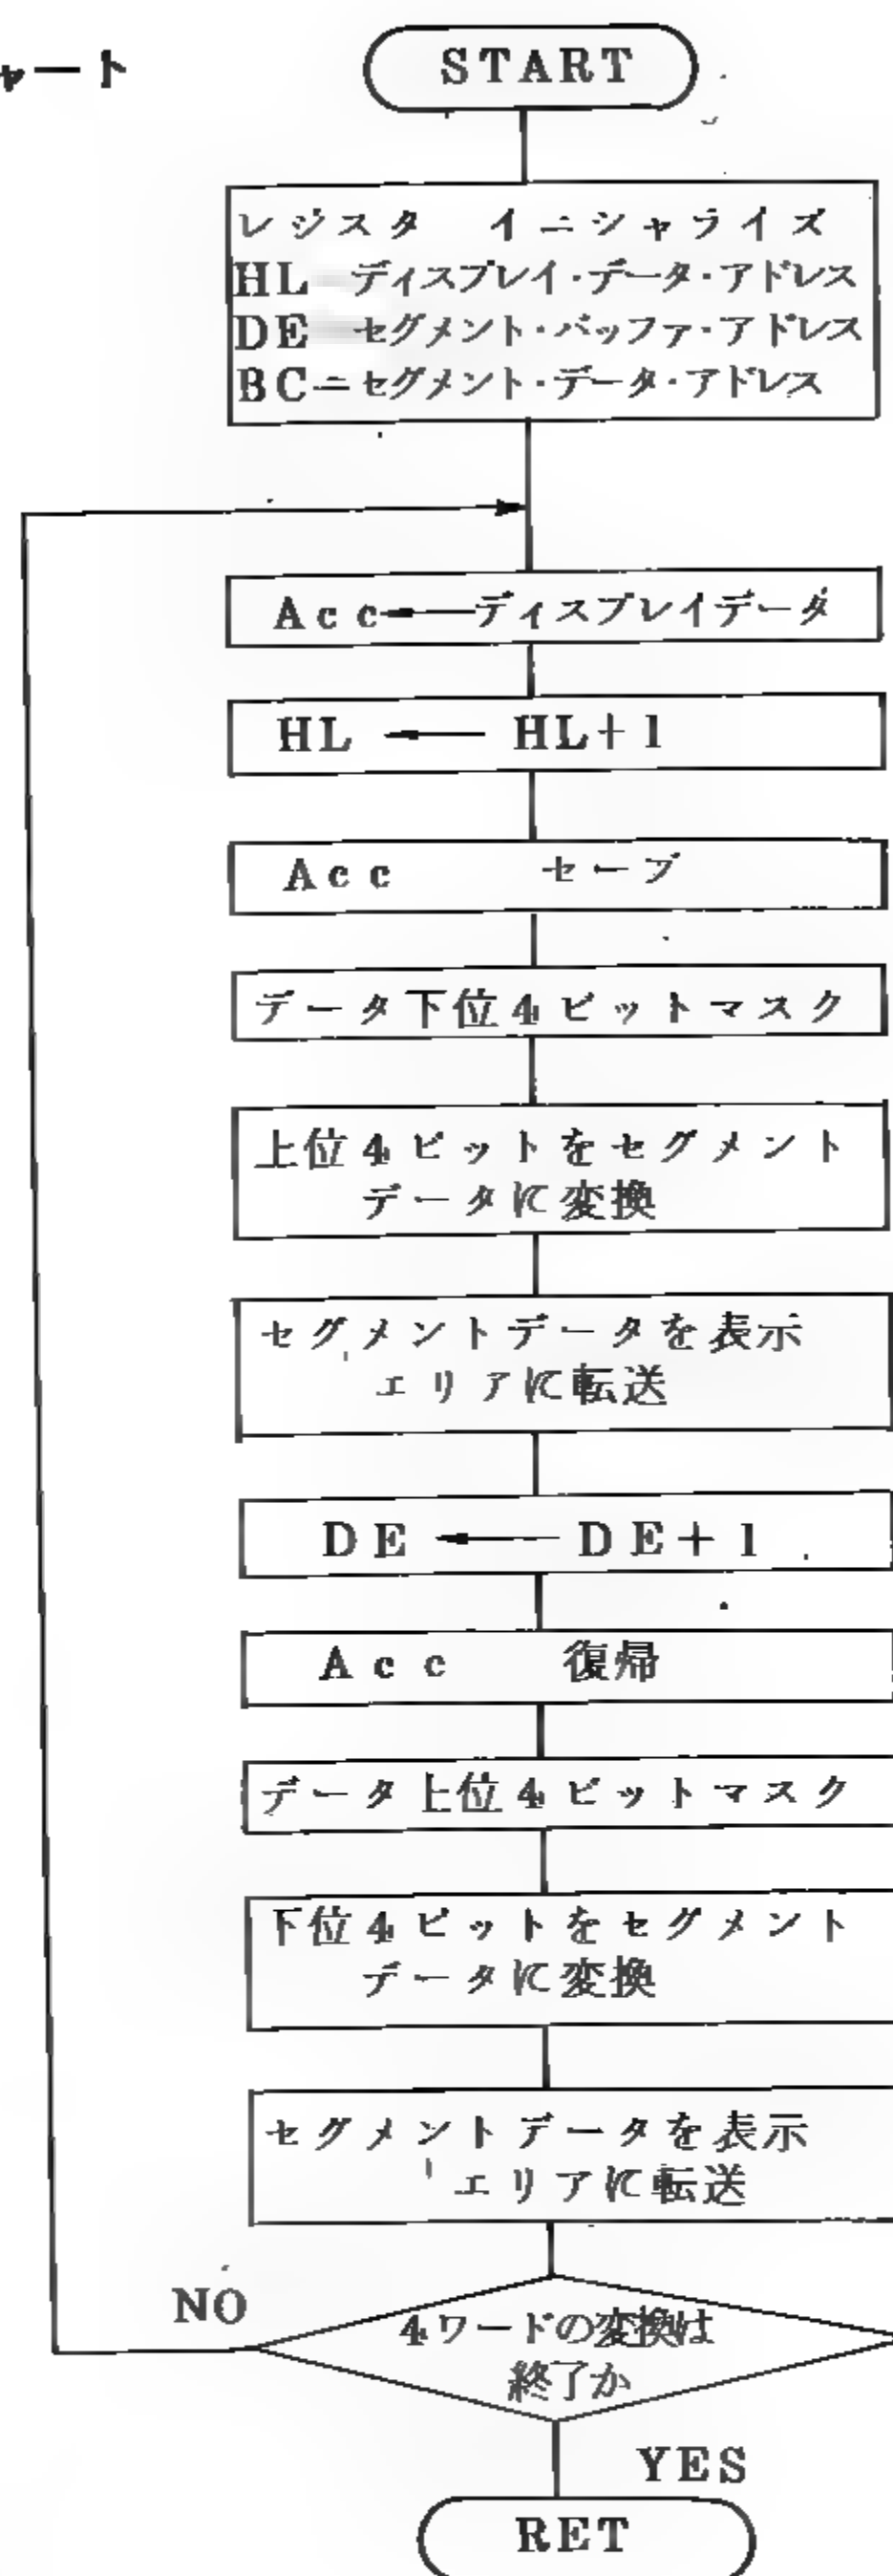 ート
START
レジスタ イニシャライズ
HL ディスプレイ・データ・アドレス
DE セグメント・バッファ・アドレス
BC=セグメント・データ・アドレス
Acc←ディスプレイデータ
HL ← HL+1
Acc セーブ
データ下位4ビットマスク
上位4ビットをセグメント
データに変換
セグメントデータを表示
エリアに転送
DE ← DE+1
Acc 復帰
データ上位4ビットマスク
下位4ビットをセグメント
データに変換
セグメントデータを表示
エリアに転送
NO
4ワードの変換は
終了か
YES
RET